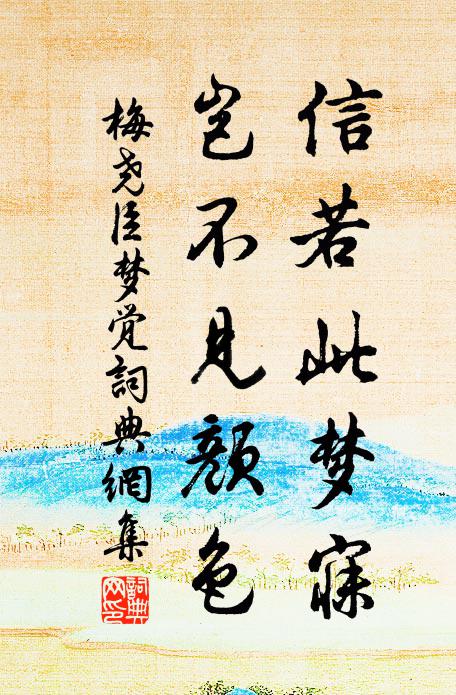 信若此梦寐
岂不见颜色
梅尧臣梦觉詞典網集
詞典网印